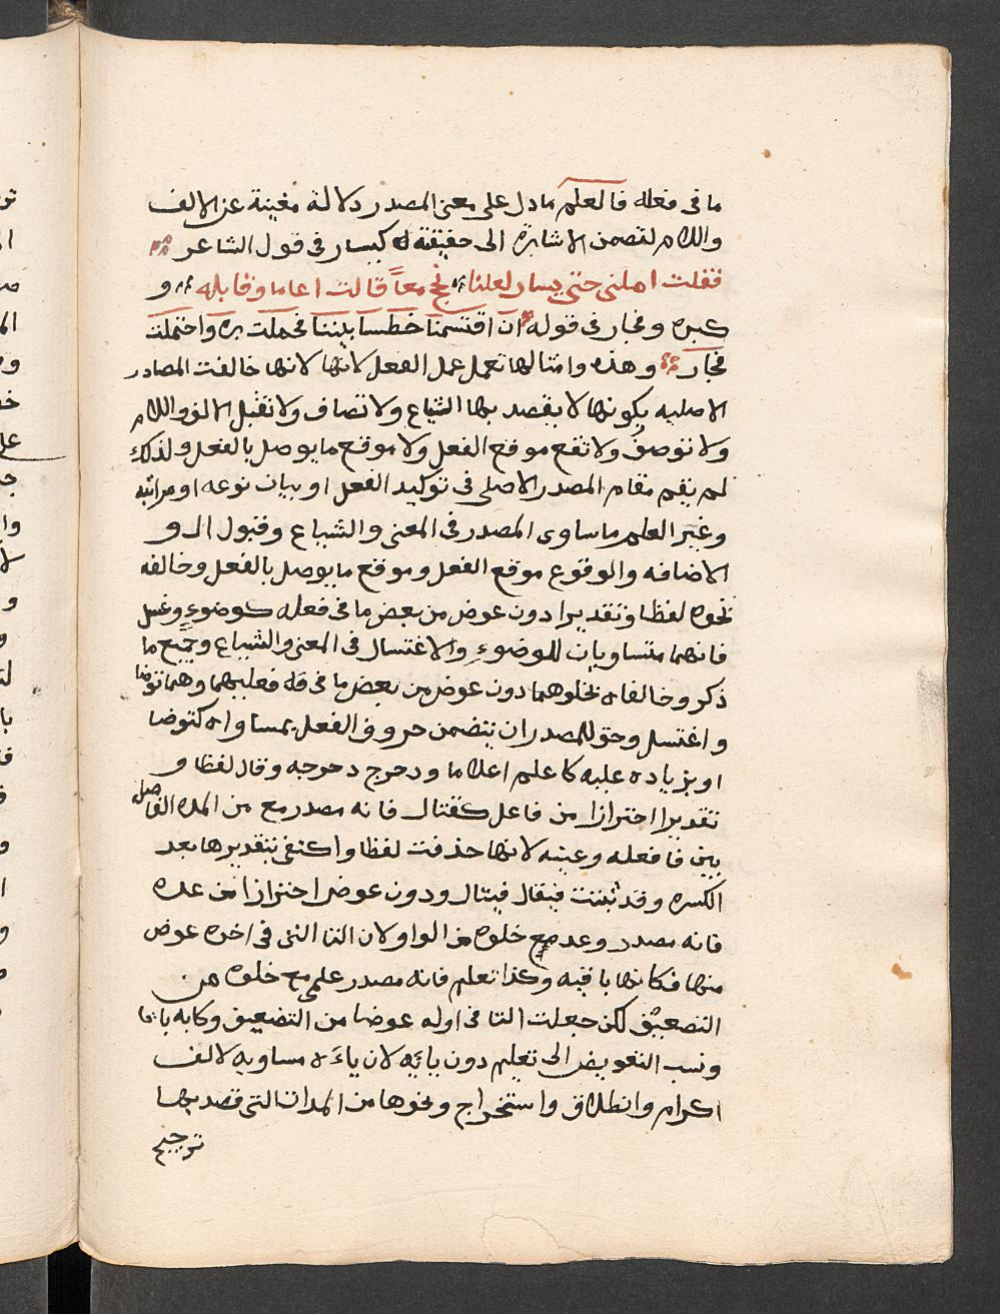 ما فى فعله فالعلم ما دل على معنى المصدر دلالة مغنية عن الالف
واللام لتضمن الاشارة الى حقيقته كيسار فى قول الشاعر
فقلت املنى حتى يسار لعلنا نحج معاً قالت اعاما وقابله و
كبره وفجار فى قوله ان اقتسمنا خطسا بيننا فحملت بره واحتملت
فجار وهذه وامثالها تعمل عمل الفعل لانها لانها خالفت المصادر
الاصليه بكونها لا يقصد بها الشياع ولا تضاف ولا تقبل الالف واللام
ولا توصف ولا تقع موقع الفعل ولا موقع ما يوصل بالفعل ولذلك
لم يقم مقام المصدر الاصلى فى توكيد الفعل او بيان نوعه او مراته
وغير العلم ما ساوى المصدر فى المعنى والشياع وقبول ال و
الاضافه والوقوع موقع الفعل وموقع ما يوصل بالفعل وخالفه
بخلوه لفظا وتقديرا دون عوض من بعض ما فى فعله كوضوء وغسل
فانهما متساويان للوضوء والاغتسال فى المعنى والشياع وجميع ما
ذكر وخالفاه بخلوهما دون عوض من بعض ما فى فعليهما وهما توضا
واغتسل وحق المصدر ان يتضمن حروف الفعل بمساواه كتوضا
او بزياده عليه كاعلم اعلاما ودحرج دحرجه وقال لفظا و
تقديرا احترازا من فاعل كقتال فانه مصدر مع من المده الفاصل
بين فا فعله وعينه لانها حذفت لفظا واكتفى بتقديرها بعد
الكسره وقد ثبتت فيقال قيتال ودون عوض احترازا من عده
فانه مصدر وعد مع خلوه من الواو لان التا التى فى اخره عوض
منها فكانها باقيه وكذا تعليم فانه مصدر علم مع خلوه من
التضعيف لكن جعلت التا فى اوله عوضا من التضعيف وكانه باقا
ونسب التعويض الى تعليم دون يايه لان ياءه مساويه لالف
اكرام وانطلاق واستخراج ونحوها من المدات التى قصد بها
ترجيح